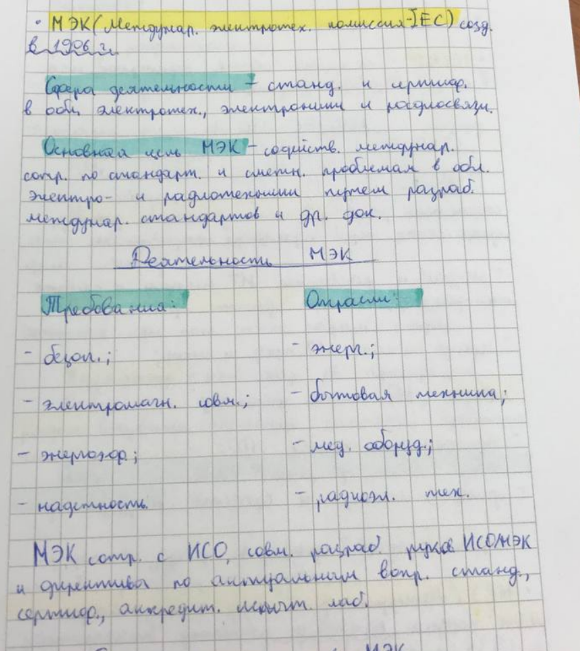 · МЭК (Междунар. электротех. комиссия-IEC) созд.
в 1906 г.
Сфера деятельности – станд. и сертифиц.
в обл. электротех., электроники и радиосвязи.
Основная цель МЭК – содейств. междунар.
сотр. по стандарт. и смежн. проблемам в обл.
электро- и радиотехники путем разраб.
междунар. стандартов и др. док.
Деятельность МЭК
Требования: Отрасли:
- безоп.; - энерг.;
- электромагн. совм.; - бытовая техника;
- энергоэф; - мед. оборуд.;
- надежность. - радиоэл. тех.
МЭК сотр. с ИСО, совм. разраб руков ИСО/МЭК
и директива по актуальным вопр. станд.,
сертиф., аккредит. испыт. лаб.
МЭК